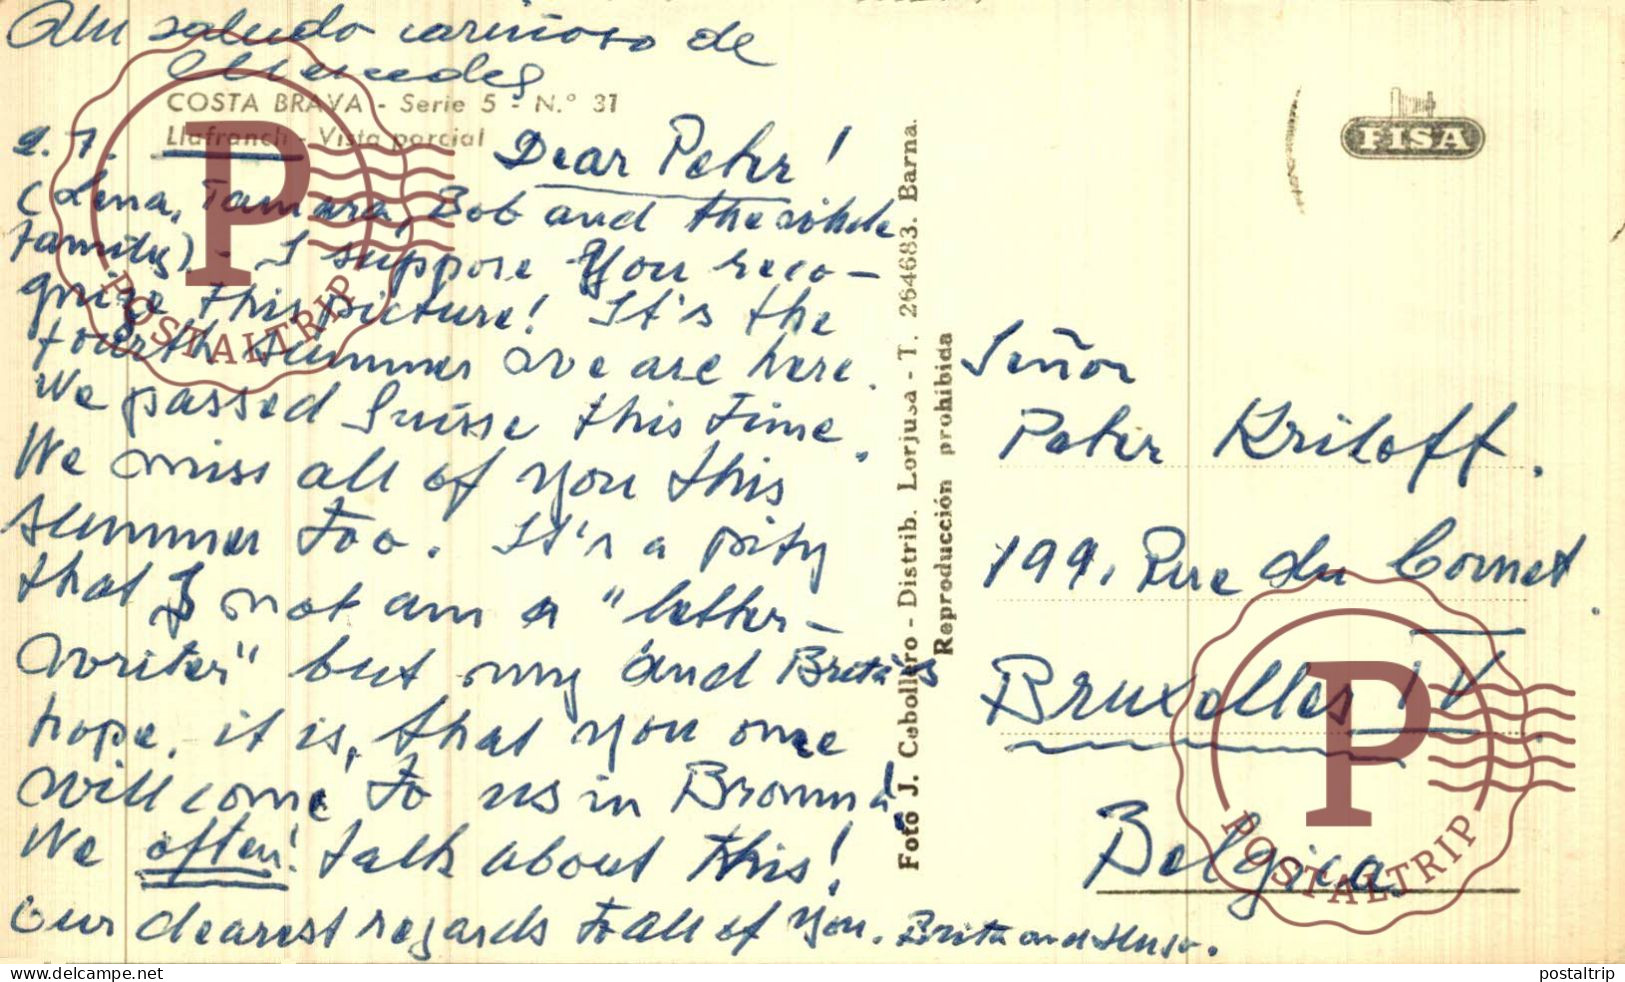 Un saludo cariñoso de
Mercedes
COSTA BRAVA - Serie 5 - N.° 31
Llafranch - Vista parcial
2.7.
Dear Petr!
(Lena, Tamara, Bob and the whole
family). - I suppose You reco-
gnize this picture! It's the
fourth summer we are here.
We passed Suisse this time.
We miss all of you this
summer too. It's a pity
that I not am a "letter-
writer" but my and Brita's
hope, it is, that you once
will come to us in Bromma!
We often! talk about this!
Our dearest regards to all of You. Brita and
Foto J. Cebollero - Distrib. Lorjusa - T. 264683. Barna.
Reproducción prohibida
FISA
Señor
Petr Kriloff.
199, Rue du Cornet.
Bruxelles IV.
Belgica
P
POSTALTRIP
P
POSTALTRIP
www.delcampe.net
postaltrip